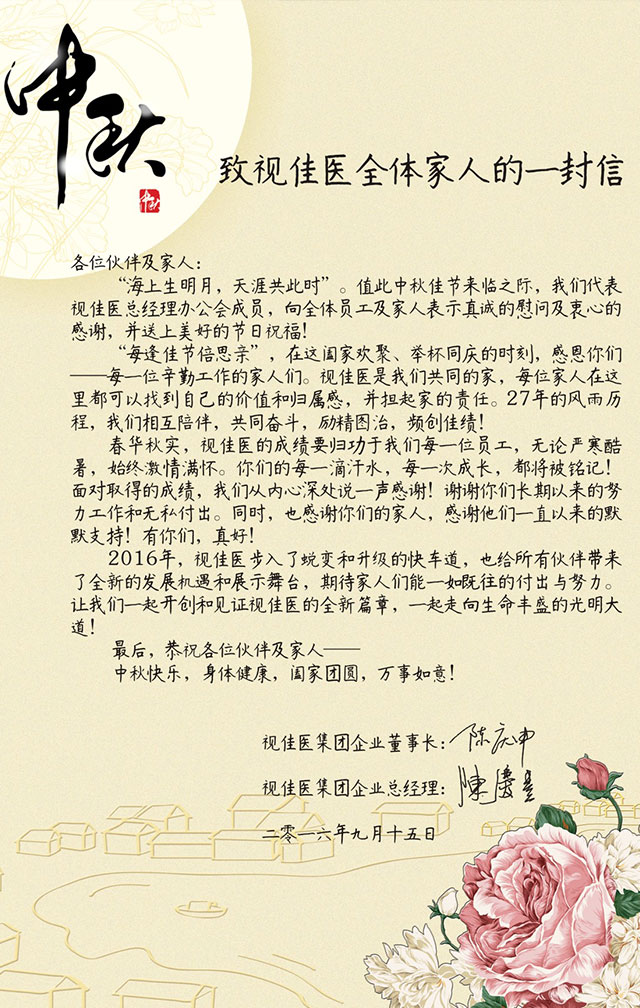 中秋
中秋
致视佳医全体家人的一封信
各位伙伴及家人：
“海上生明月，天涯共此时”。值此中秋佳节来临之际，我们代表
视佳医总经理办公会成员，向全体员工及家人表示真诚的慰问及衷心的
感谢，并送上美好的节日祝福！
“每逢佳节倍思亲”，在这阖家欢聚、举杯同庆的时刻，感恩你们
——每一位辛勤工作的家人们。视佳医是我们共同的家，每位家人在这
里都可以找到自己的价值和归属感，并担起家的责任。27年的风雨历
程，我们相互陪伴，共同奋斗，励精图治，频创佳绩！
春华秋实，视佳医的成绩要归功于我们每一位员工，无论严寒酷
暑，始终激情满怀。你们的每一滴汗水，每一次成长，都将被铭记！
面对取得的成绩，我们从内心深处说一声感谢！谢谢你们长期以来的努
力工作和无私付出。同时，也感谢你们的家人，感谢他们一直以来的默
默支持！有你们，真好！
2016年，视佳医步入了蜕变和升级的快车道，也给所有伙伴带来
了全新的发展机遇和展示舞台，期待家人们能一如既往的付出与努力。
让我们一起开创和见证视佳医的全新篇章，一起走向生命丰盛的光明大
道！
最后，恭祝各位伙伴及家人——
中秋快乐，身体健康，阖家团圆，万事如意！
视佳医集团企业董事长：陈庆中
视佳医集团企业总经理：
二零一六年九月十五日